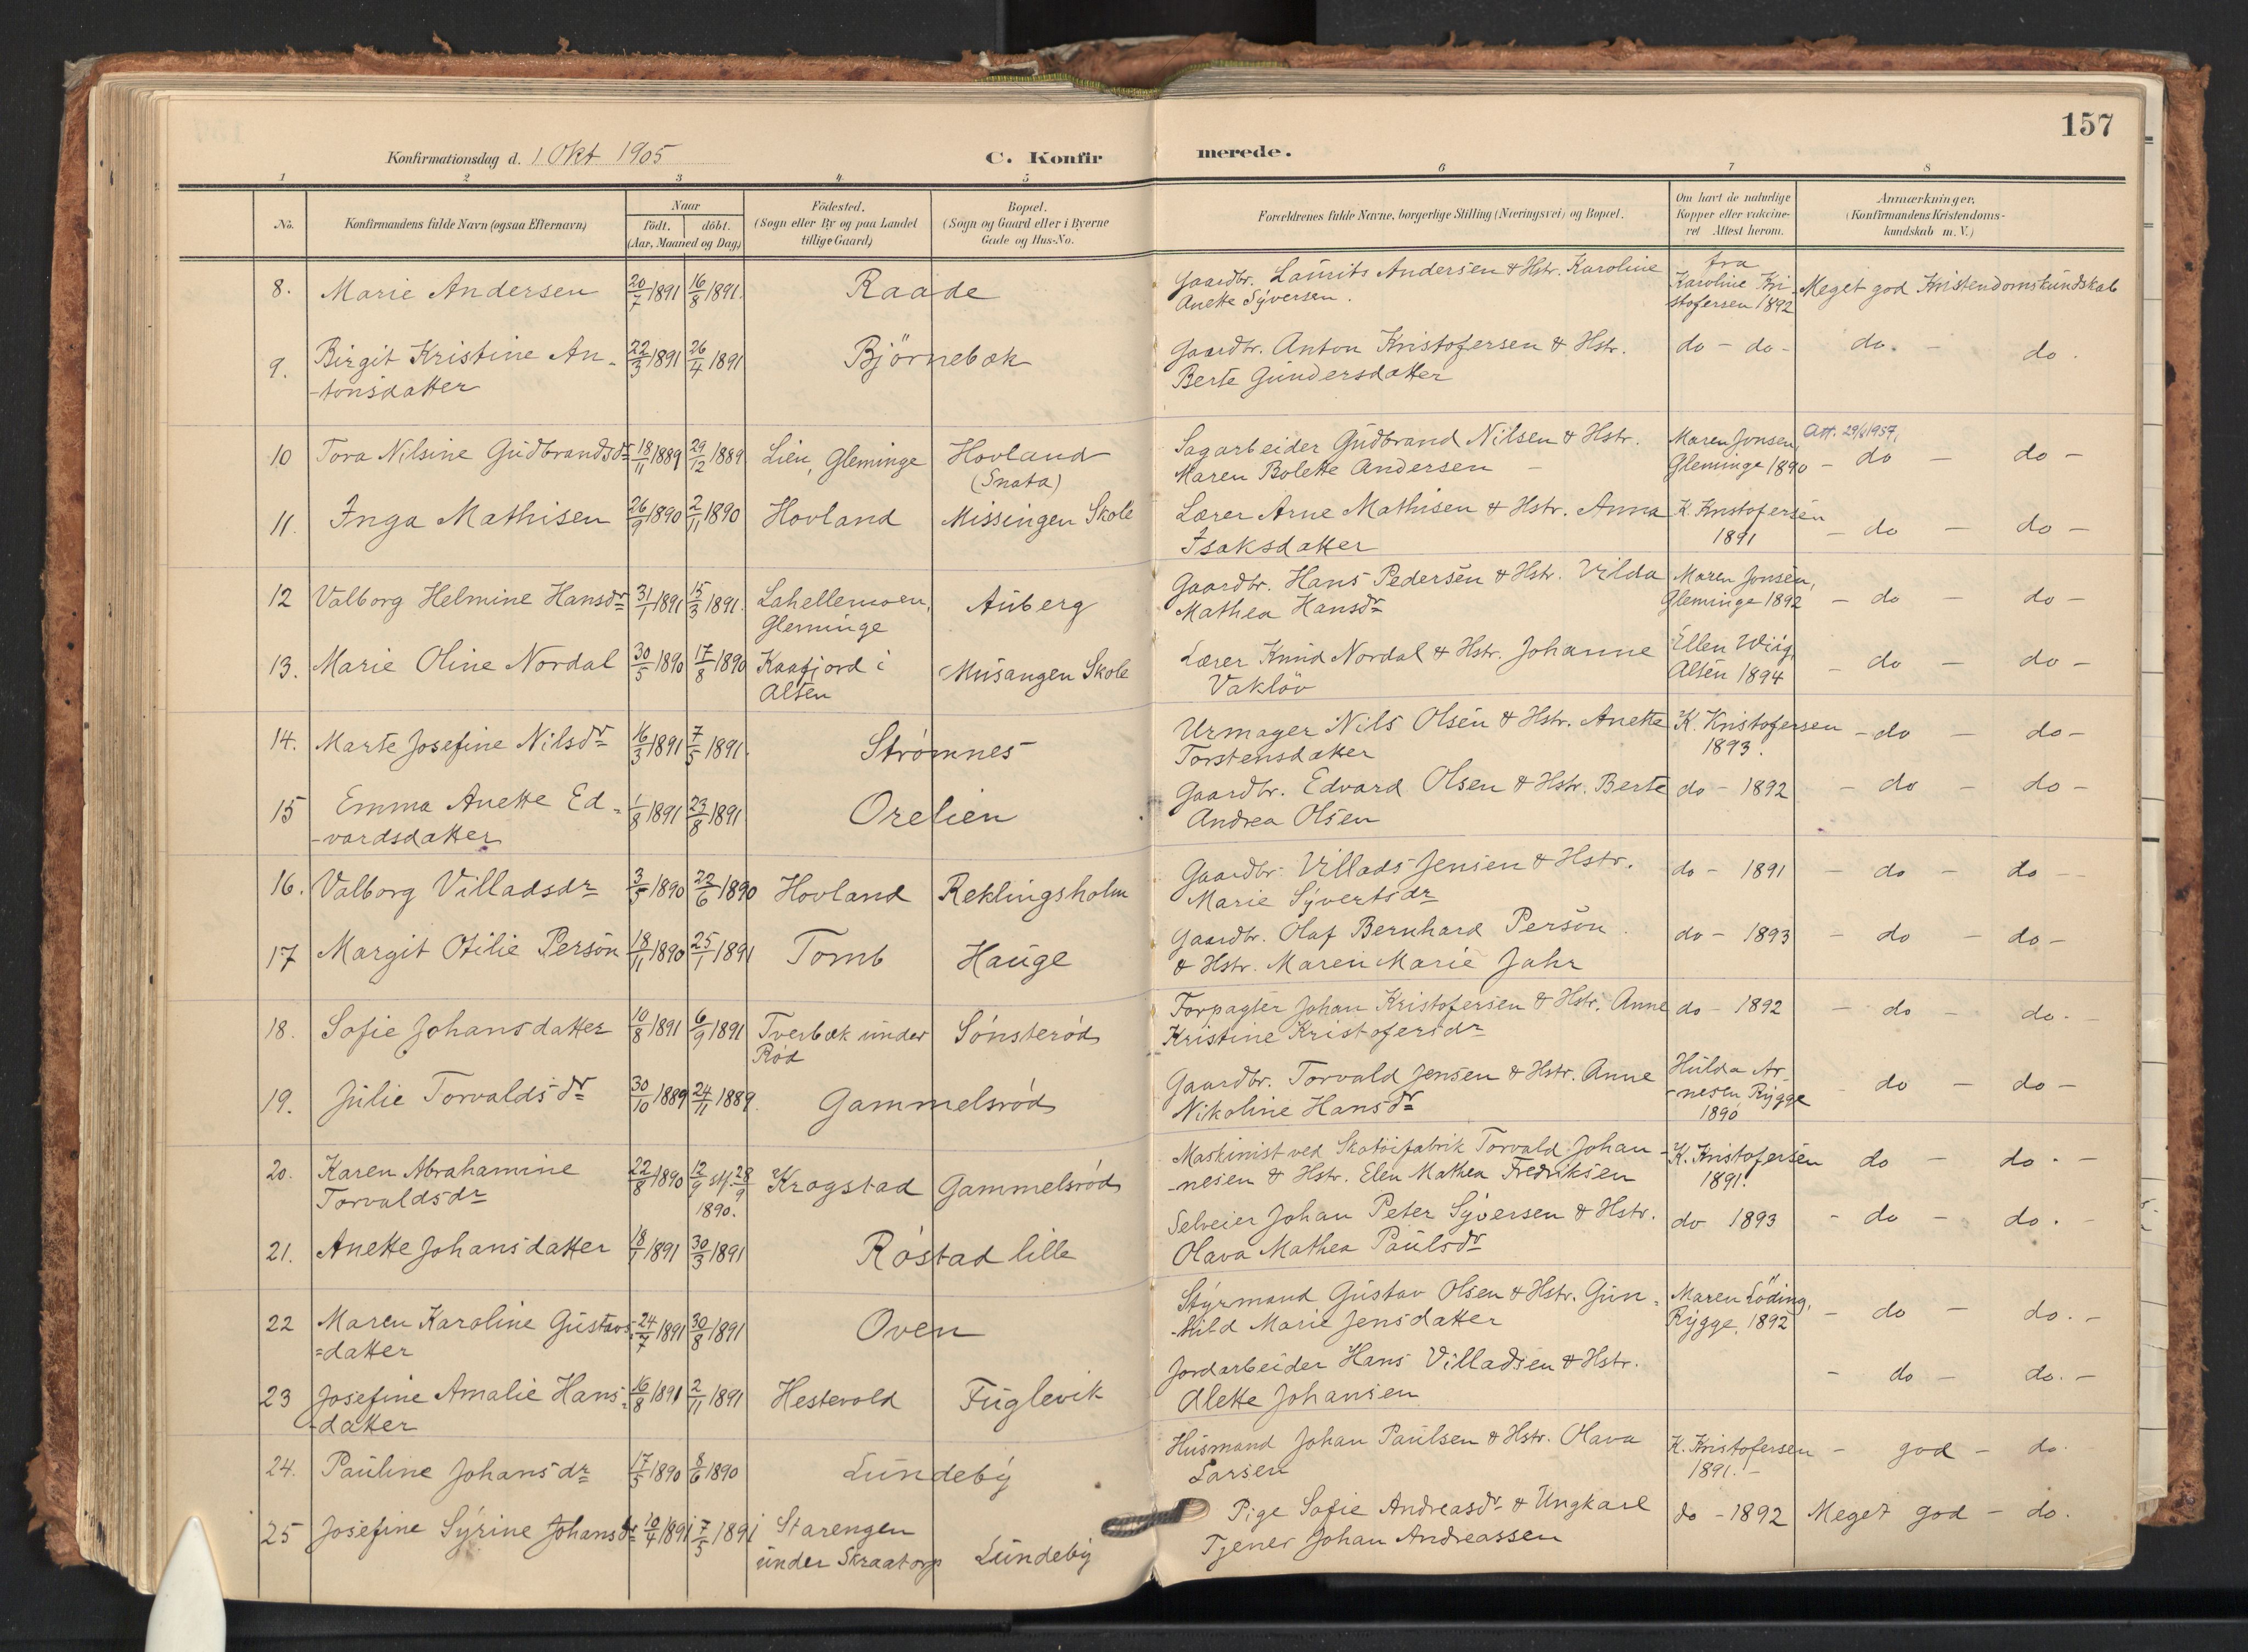 157
Konfirmationsdag d. 1 Okt 1905 C. Konfirmerede.
1 2 3 4 5 6 7 8
No. Konfirmandens fulde Navn (ogsaa Efternavn) Naar født. døbt. (Aar, Maaned og Dag) Fødested. (Sogn eller By og paa Landet tillige Gaard) Bopæl. (Sogn og Gaard eller i Byerne Gade og Hus-No. Forældrenes fulde Navne, borgerlige Stilling (Næringsvei) og Bopæl. Om havt de naturlige Kopper eller vakcineret Attest herom. Anmærkninger. (Konfirmandens Kristendomskundskab m. V.)
8. Marie Andersen 20/7 1891 16/8 1891. Raade Gaardbr. Laurits Andersen & Hstr. Karoline fra Karoline Kri- Meget god Kristendomskundskab
Anette Syversen. stofersen 1892
9. Birgit Kristine An- 22/3 1891 26/4 1891 Björnebæk Gaardbr. Anton Kristofersen & Hstr. do - do - do. - do.
-tonsdatter Berte Gundersdatter
10 Tora Nilsine Gudbrandsdr 18/11 1889 29/12 1889 Lien, Gleminge Hovland Sagarbeider Gudbrand Nilsen & Hstr. Maren Jonsen, Att. 29/6 1957,
(Snata) Maren Bolette Andersen - Gleminge 1890 - do - do -
11. Inga Mathisen 26/9 1890 2/11 1890 Hovland Missingen Skole Lærer Arne Mathisen & Hstr. Anna K. Kristofersen - do - do -
Isaksdatter 1891
12 Valborg Helmine Hansdr 31/1 1891 15/3 1891. Lahellemoen, Auberg Gaardbr. Hans Pedersen & Hstr. Vilda Maren Jonsen,
Gleminge Mathea Hansdr Gleminge 1892 - do - do -
13. Marie Oline Nordal 30/5 1890 17/8 1890 Kaafjord i Musangen Skole Lærer Knud Nordal & Hstr. Johanne Ellen Wiig, - do - do -
Alten Vakløv Alten 1894
14. Marte Josefine Nilsdr 16/3 1891 7/5 1891. Strømnes Urmager Nils Olsen & Hstr. Anette K. Kristofersen - do - do -
Torstensdatter 1893.
15 Emma Anette Ed- 1/8 1891 23/8 1891 Orelien Gaardbr. Edvard Olsen & Hstr. Berte do - 1892 - do - do -
-vardsdatter Andrea Olsen
16. Valborg Villadsdr 3/5 1890 22/6 1890 Hovland Reklingsholm Gaardbr. Villads Jensen & Hstr. do - 1891 - do - do - -
Marie Syvertsdr
17 Margit Otilie Person 18/11 1890 25/1 1891 Tomb Hauge Gaardbr. Olaf Bernhard Person. do - 1893 - do - do -
& Hstr. Maren Marie Jahr
18. Sofie Johansdatter 10/8 1891 6/9 1891 Tverbæk under Sønsterød Forpagter Johan Kristofersen & Hstr. Anne do - 1892 - do - do. -
Rød Kristine Kristofersdr
19. Julie Torvaldsdr 30/10 1889 24/11 1889. Gammelsrød Gaardbr. Torvald Jensen & Hstr. Anne Hulda Ar- - do - do -
Nikoline Hansdr -nesen Rygge
1890
20. Karen Abrahamine 22/8 1890 12/9 stf. 28/9 Krogstad Gammelsrød Maskinist ved Skotøifabrik Torvald Johan- K. Kristofersen do - do. -
Torvaldsdr 1890. -nesen & Hstr. Elen Mathea Fredriksen 1891.
21. Anette Johansdatter 18/1 1891 30/3 1891 Røstad lille Selveier Johan Peter Syversen & Hstr. do 1893 - do - do. -
Olava Mathea Paulsdr
22 Maren Karoline Gustavs- 24/7 1891 30/8 1891 Oven Styrmand Gustav Olsen & Hstr. Gun- Maren Löding, - do - do. -
=datter -hild Marie Jensdatter Rygge, 1892
23 Josefine Amalie Hans- 16/8 1891 2/11 1891 Hestevold Fuglevik Jordarbeider Hans Villadsen & Hstr. - do - do. -
-datter Alette Johansen
24. Pauline Johansdr 17/5 1890 8/6 1890 Lundeby Husmand Johan Paulsen & Hstr. Olava K. Kristofersen - god - do.
Larsen 1891. -
25 Josefine Syrine Johansdr 10/4 1891 7/5 1891 Starengen Pige Sofie Andreasdr & Ungkarl do - 1892 Meget god - do.
under Skraatorp Lundeby Tjener Johan Andreassen